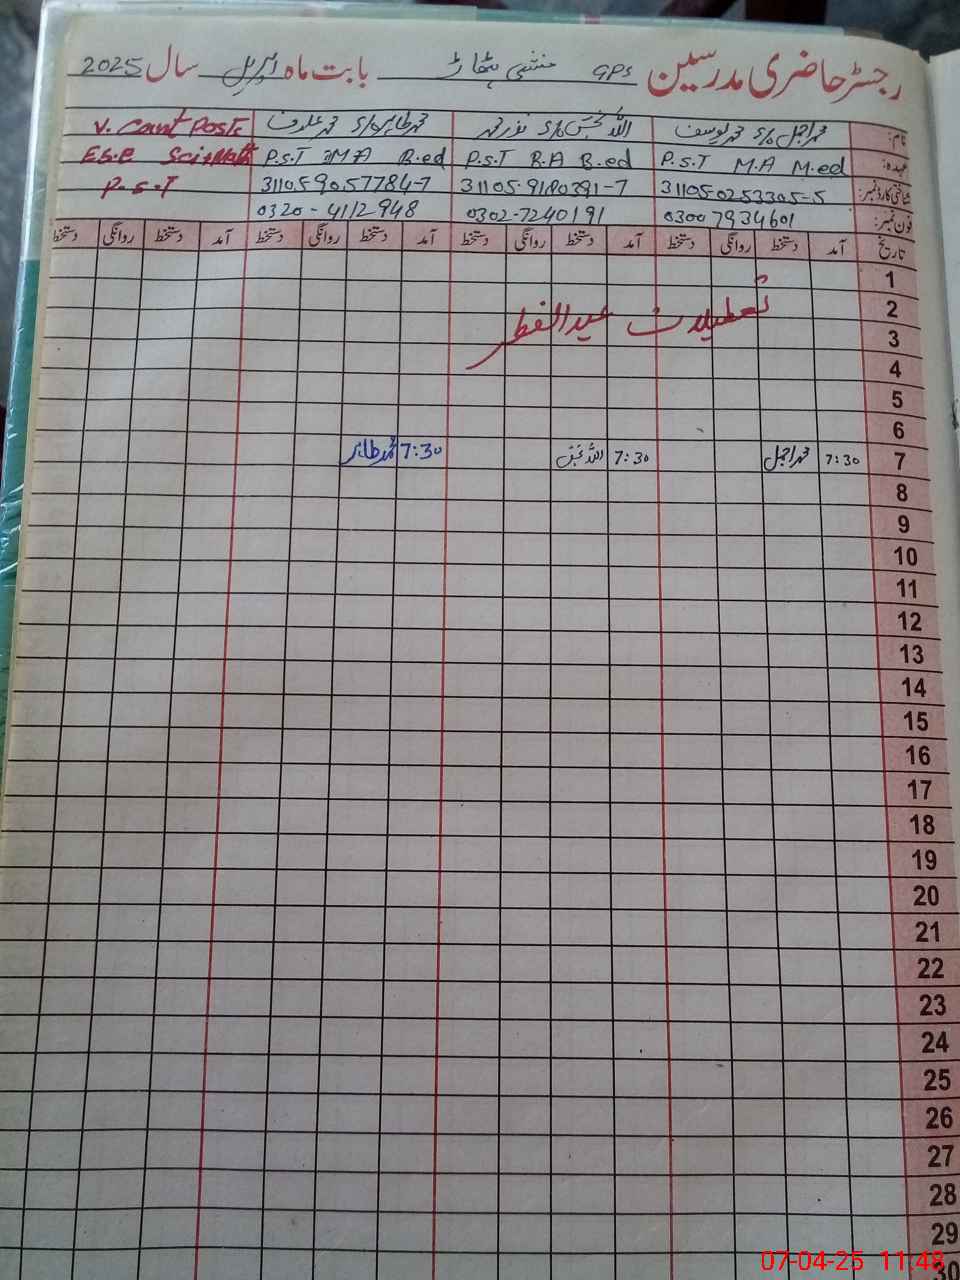 رجسٹر حاضری مدرسین GPS منشی پٹھاڑ بابت ماہ اپریل سال 2025
نام: محمد اجمل s/o محمد یوسف اللہ بخش s/o نذر محمد محمد طاہر s/o V. Cant Posts
عہدہ: P.S.T M.A M.ed P.S.T B.A B.ed P.S.T M.A B.ed E.S.E Sci+Math
شناختی کارڈ نمبر: 31105-0253305-5 31105-9180391-7 31105-9057784-7 P.S.T
فون نمبر: 03007934601 0302-7240191 0320-4112948
تاریخ آمد دستخط روانگی دستخط آمد دستخط روانگی دستخط آمد دستخط روانگی دستخط آمد دستخط روانگی دستخط
1
2 تعطیلات عید الفطر
3
4
5
6
7 7:30 محمد اجمل 7:30 اللہ بخش 7:30 محمد طاہر
8
9
10
11
12
13
14
15
16
17
18
19
20
21
22
23
24
25
26
27
28
29
30
07-04-25 11:48